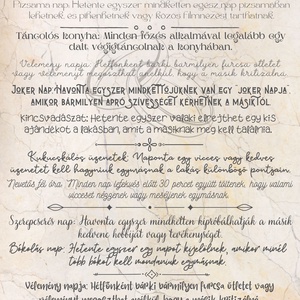 Pizsama nap: Hetente egyszer mindketten egész nap pizsamában
lehetnek, és pihenhetnek vagy közös filmnézést tarthatnak.
Táncolós konyha: Minden főzés alkalmával legalább egy
dalt végigtáncolnak a konyhában.
Vélemény nap: Hétfőnként bárki bármilyen furcsa ötletet
vagy véleményt megoszthat anélkül, hogy a másik kritizálna.
Joker nap: Havonta egyszer mindkettőjüknek van egy "joker napja",
amikor bármilyen apró szívességet kérhetnek a másiktól.
Kincsvadászat: Hetente egyszer valaki elrejthet egy kis
ajándékot a lakásban, amit a másiknak meg kell találnia.
Kukucskálós üzenetek: Naponta egy vicces vagy kedves
üzenetet kell hagyniuk egymásnak a lakás különböző pontjain.
Nevetős fél óra: Minden nap lefekvés előtt 30 percet együtt töltenek, hogy valami
vicceset nézzenek vagy meséljenek egymásnak.
Szerepcserés nap: Havonta egyszer mindketten kipróbálhatják a másik
kedvenc hobbiját vagy tevékenységét.
Bókolás nap: Hetente egyszer egy napot kijelölnek, amikor minél
több bókot kell mondaniuk egymásnak.
Vélemény nap: Hétfőnként bárki bármilyen furcsa ötletet vagy
véleményt megoszthat anélkül, hogy a másik kritizálná.